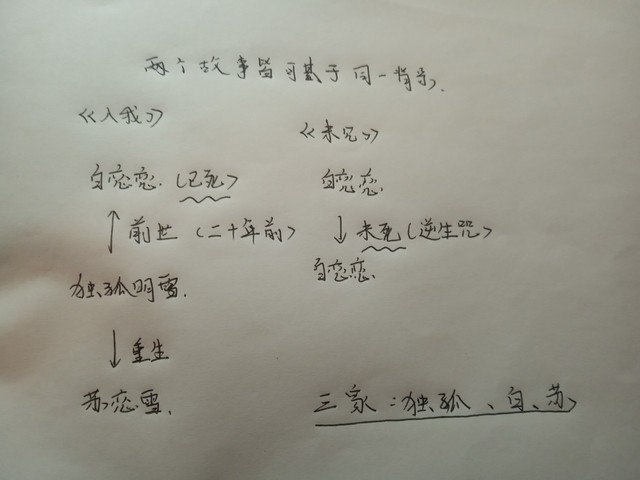 两个故事皆可基于同一背景。
《入我》
《未咒》
白恋恋.（已死）
白恋恋.
↑前世（二十年前）
↓未死（逆生咒）
独孤明雪.
白恋恋.
↓重生
苏恋雪.
三家：独孤、白、苏